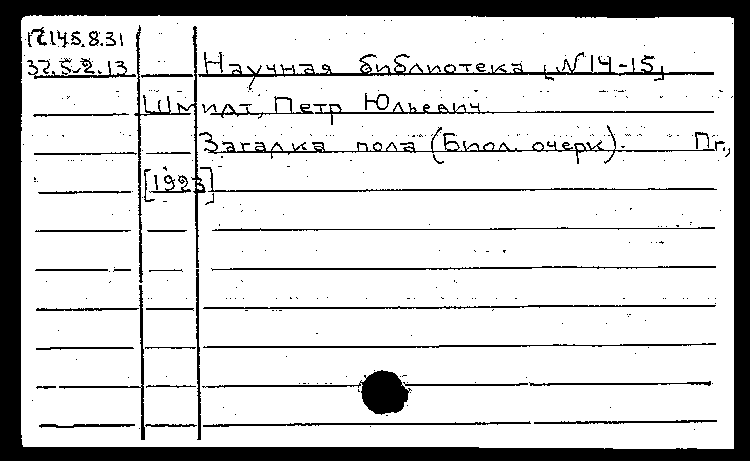 37.5.2.13 Научная библиотека [N14-15]
Шмидт, Петр Юльевич
Загадка пола (Биол. очерк). Пг.,
[1923]